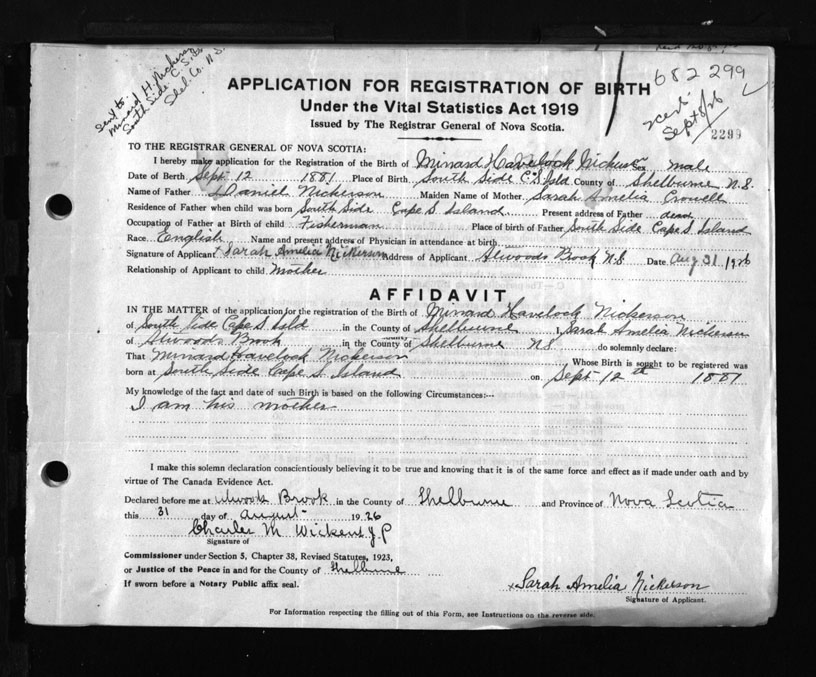 682299
Sent to
Minard H. Nickerson
South Side C. S. Isld
Shel. Co. N.S.
APPLICATION FOR REGISTRATION OF BIRTH
Under the Vital Statistics Act 1919
Issued by The Registrar General of Nova Scotia.
Sept 8/26
2299
TO THE REGISTRAR GENERAL OF NOVA SCOTIA:
I hereby make application for the Registration of the Birth of Minard Havelock Nickerson Sex male
Date of Birth Sept 12 1881 Place of Birth South Side C. S. Isld County of Shelburne N.S.
Name of Father Daniel Nickerson Maiden Name of Mother Sarah Amelia Crowell
Residence of Father when child was born South Side Cape S. Island Present address of Father dead
Occupation of Father at Birth of child Fisherman Place of birth of Father South Side Cape S. Island
Race English Name and present address of Physician in attendance at birth
Signature of Applicant x Sarah Amelia Nickerson Address of Applicant Atwoods Brook N.S. Date Aug 31 1926
Relationship of Applicant to child Mother
AFFIDAVIT
IN THE MATTER of the application for the registration of the Birth of Minard Havelock Nickerson
of South Side Cape S. Isld in the County of Shelburne I, Sarah Amelia Nickerson
of Atwoods Brook in the County of Shelburne N.S. do solemnly declare:
That Minard Havelock Nickerson Whose Birth is sought to be registered was
born at South Side Cape S. Island on Sept 12th 1881
My knowledge of the fact and date of such Birth is based on the following Circumstances:--
I am his mother
I make this solemn declaration conscientiously believing it to be true and knowing that it is of the same force and effect as if made under oath and by
virtue of The Canada Evidence Act.
Declared before me at Atwoods Brook in the County of Shelburne and Province of Nova Scotia
this 31 day of August 1926
Charles M Wickens J. P
Signature of
Commissioner under Section 5, Chapter 38, Revised Statutes, 1923,
or Justice of the Peace in and for the County of Shelburne
If sworn before a Notary Public affix seal.
x Sarah Amelia Nickerson
Signature of Applicant.
For Information respecting the filling out of this Form, see Instructions on the reverse side.